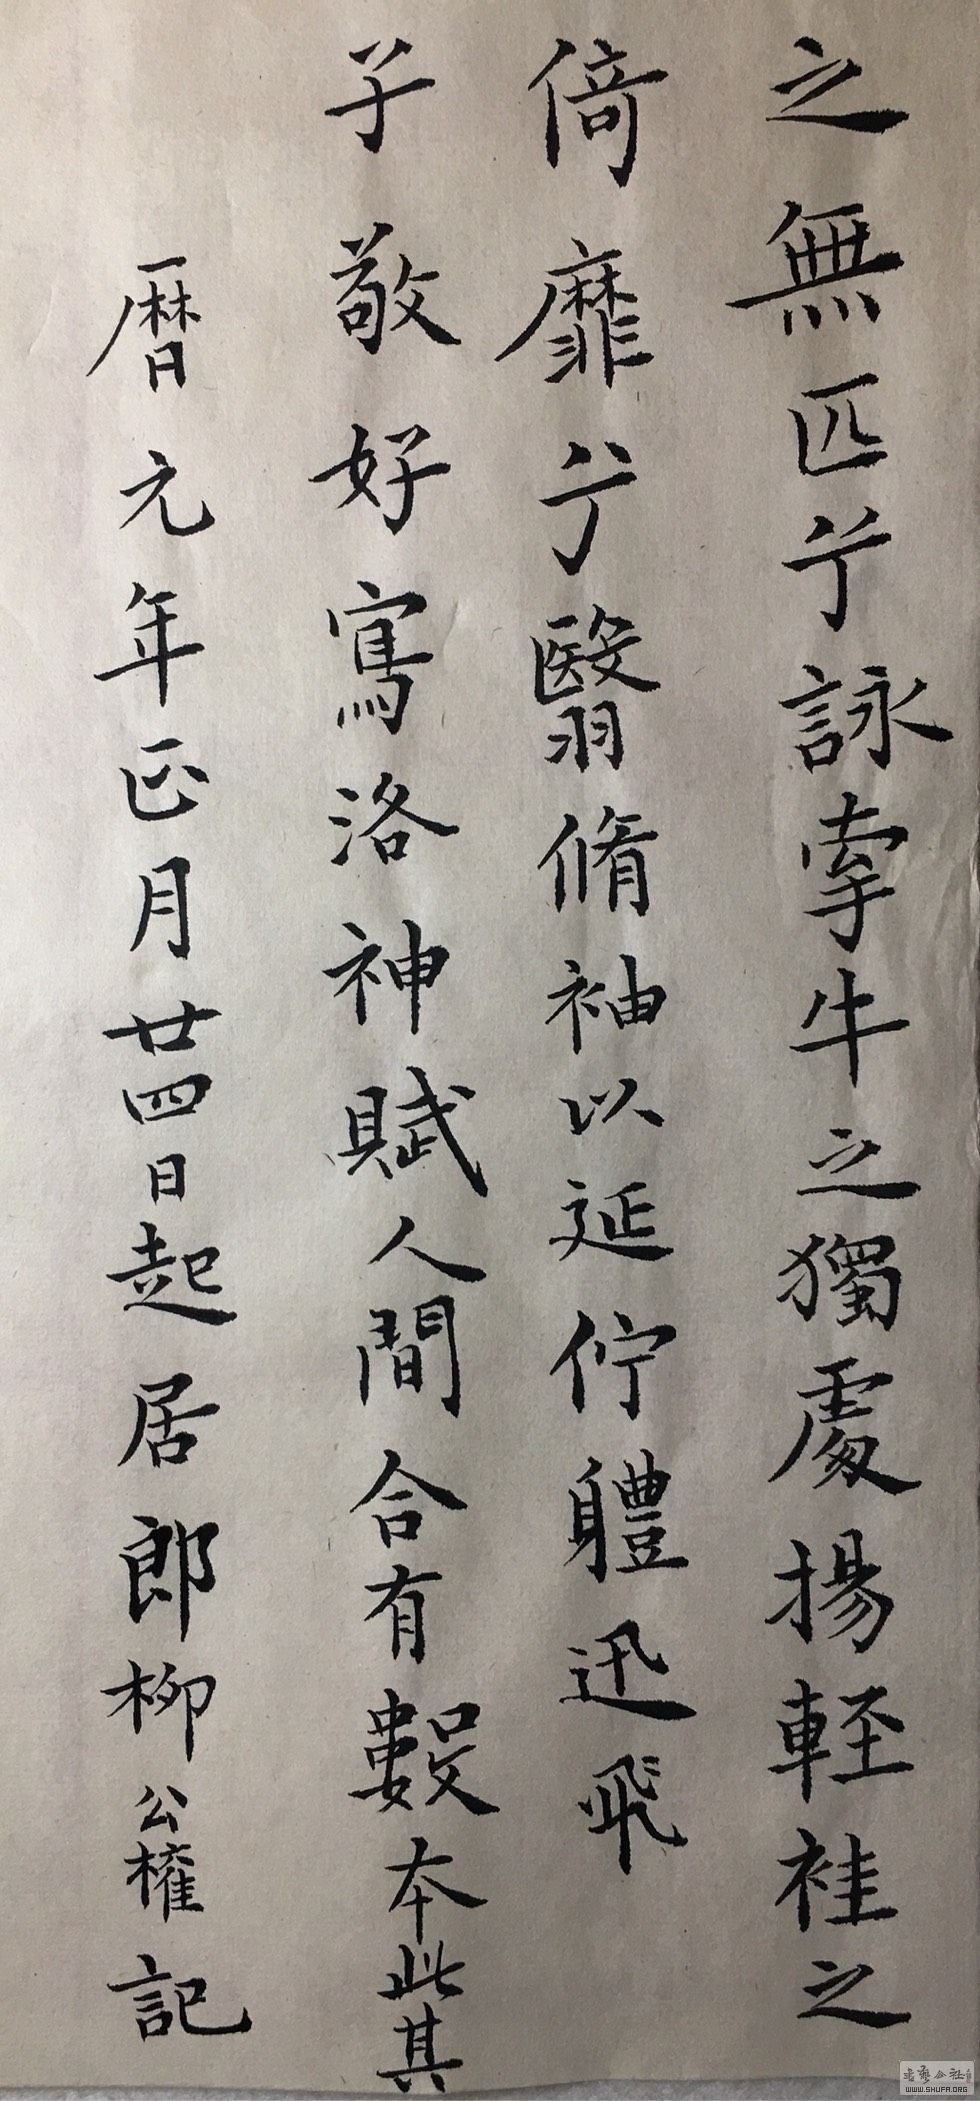 之無匹兮詠牽牛之獨處揚輕袿之
倚靡兮翳脩袖以延佇體迅飛
子敬好寫洛神賦人間合有數本此其
曆元年正月廿四日起居郎柳公權記
WWW.SHUFA.ORG